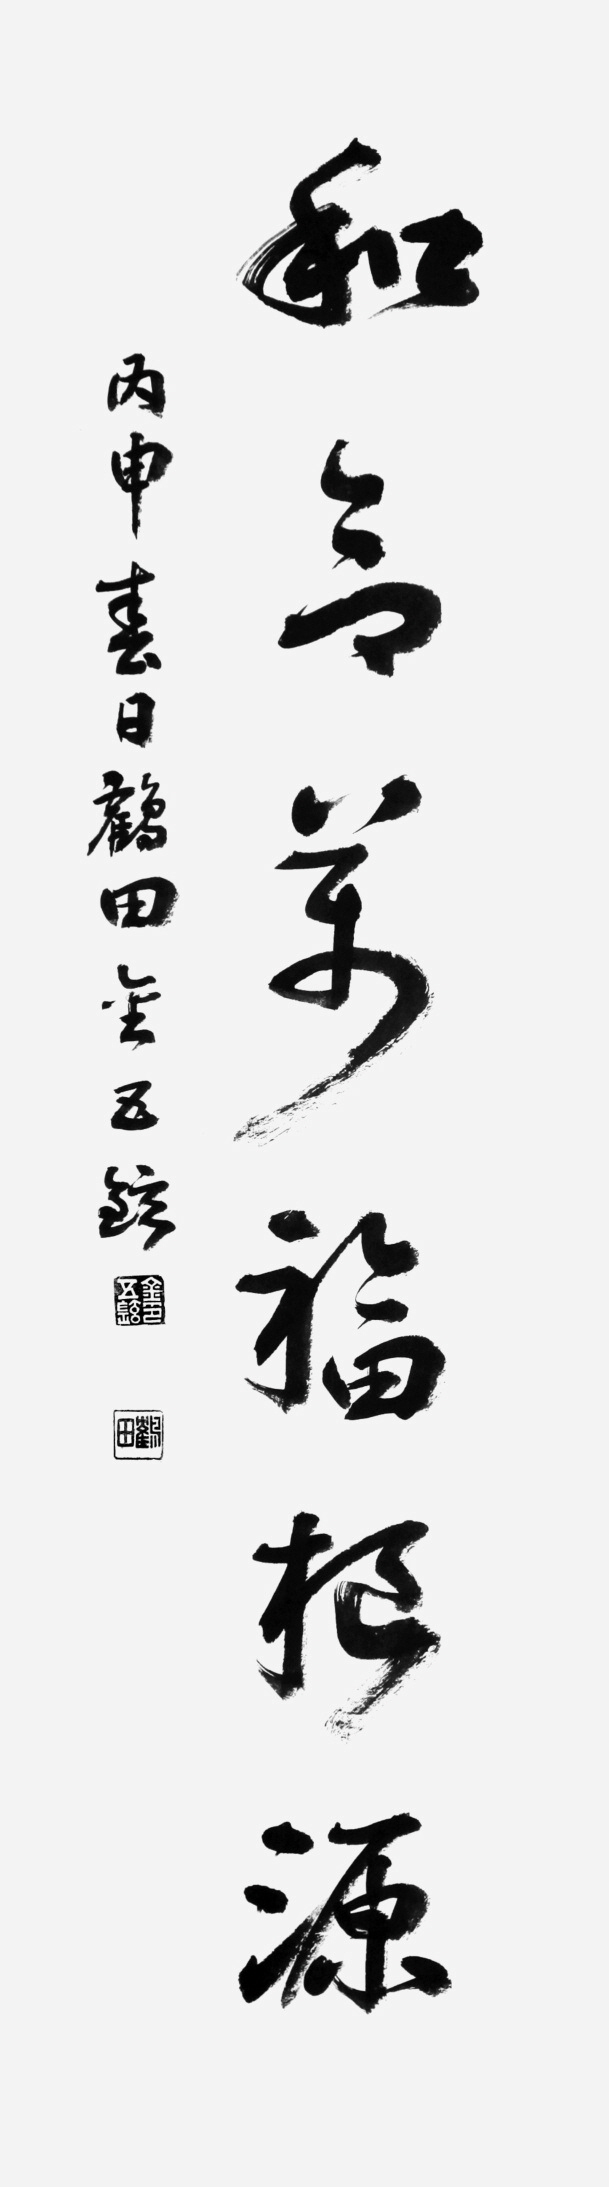 和萬福根源
丙申春日鶴田金五鉉
金印五鉉
鶴田